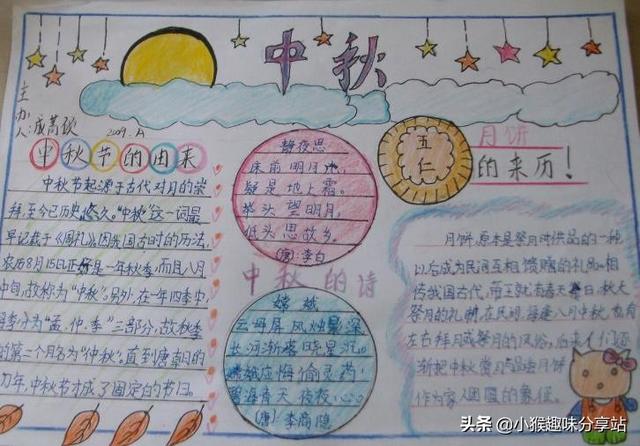 中秋
主办人:成
2009.
中秋节的由来
中秋节起源于古代对月的崇
拜,至今已历史悠久。"中秋"这一词最
早记载于《周礼》。因我国古时的历法,
农历8月15日正是一年秋季,而且八月
中旬,故称为"中秋"。另外,在一年四季中,
季分为"孟、仲、季"三部分,故秋季
的第二个月名为"仲秋",直到唐朝的
初年,中秋节才成了固定的节日。
静夜思
床前明月光,
疑是地上霜。
举头望明月,
低头思故乡。
(唐)李白
中秋的诗
嫦娥
云母屏风烛影深,
长河渐落晓星沉。
嫦娥应悔偷灵药,
碧海青天夜夜心。
(唐)李商隐
五仁
月饼
的来历!
月饼,原本是祭月时供品的一种
以后成为民间互相馈赠的礼品。相
传我国古代,帝王就有春天祭日,秋天
祭月的礼制,在民间,每逢八月中秋,也有
左右拜月或祭月的风俗,后来人们逐
渐把中秋赏月与品尝月饼
作为家人团圆的象征。
头条 @小猴趣味分享站